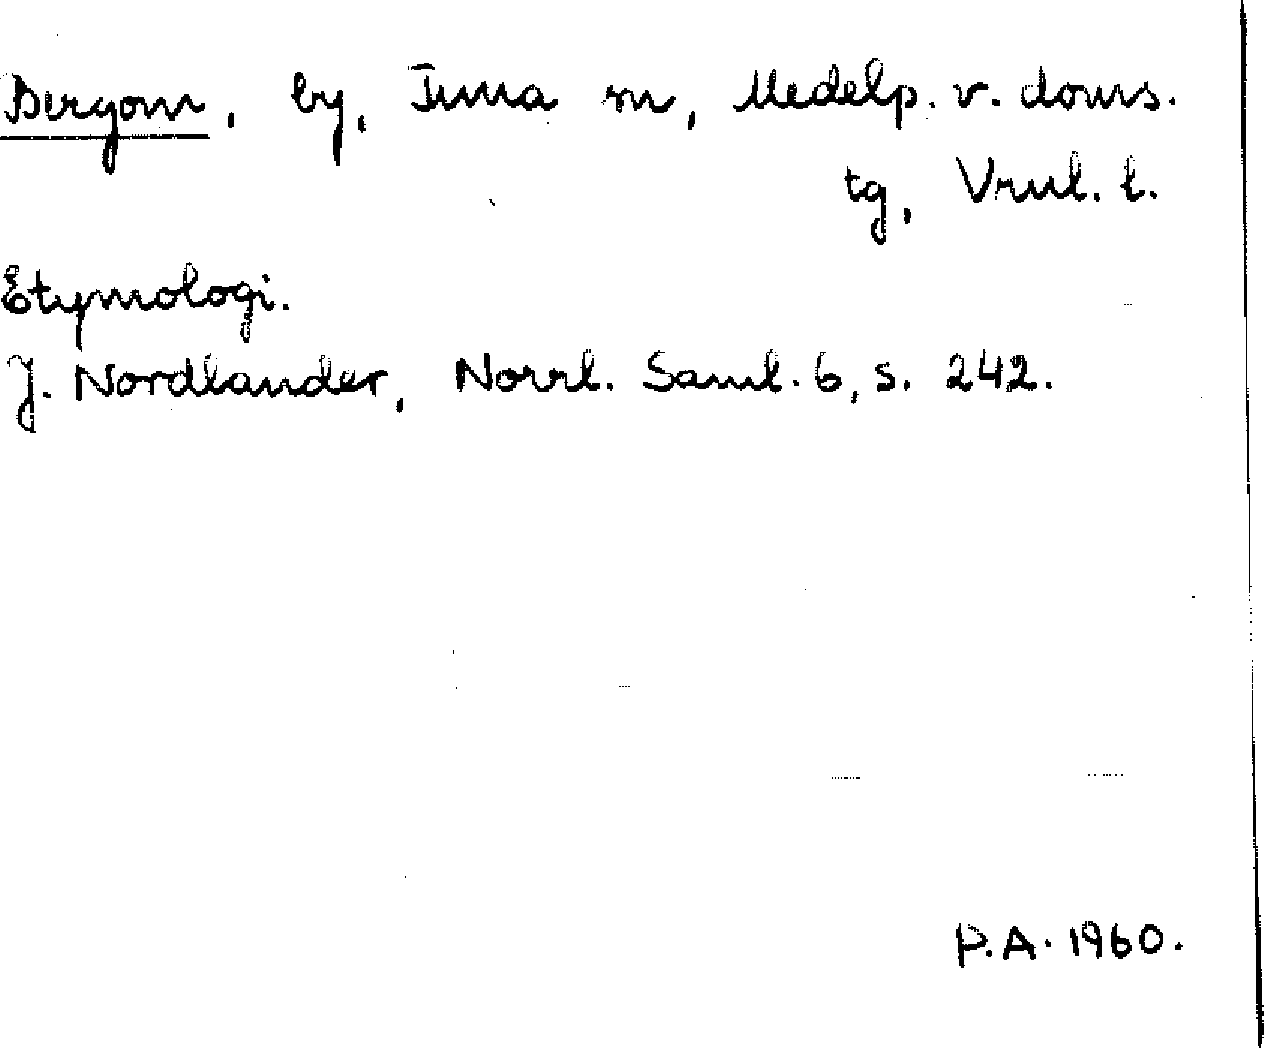 Bergom, by, Tuna sn, Medelp. v. doms.
tg, Vnl. l.
Etymologi.
J. Nordlander, Norrl. Saml. 6, s. 242.
P.A. 1960.